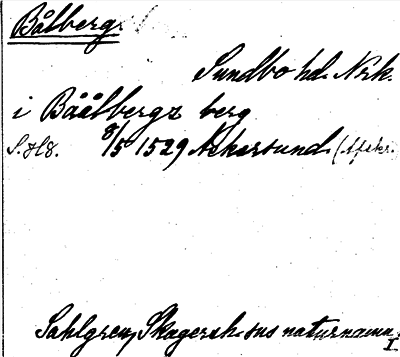 Bålberg
Sundbo hd. Nrk.
i Bäålbergz berg
S. H8. 8/5 1529 Askersund. (Afskr.
Sahlgren, Skagersh. sns naturnamn
I.